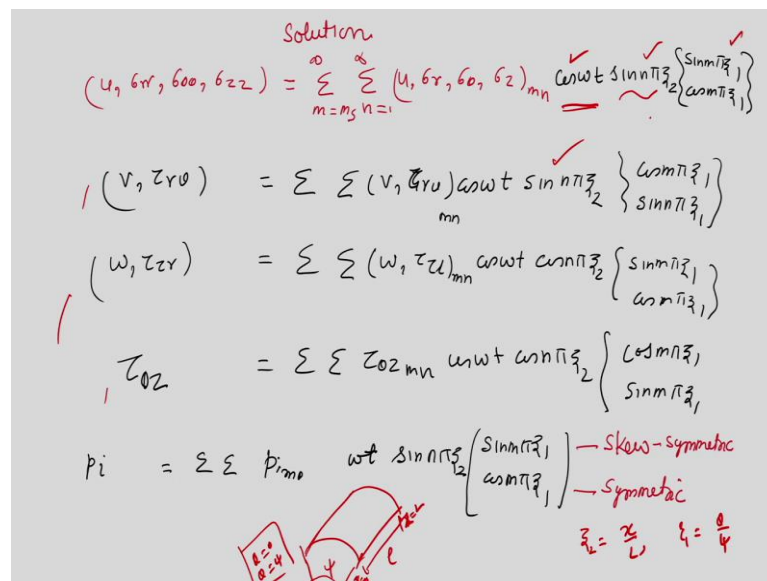 Solution
(u, σrr, σθθ, σzz) = ∞Σm=ms ∞Σn=1 (u, σr, σθ, σz)mn cosωt sin nπξ2 {sin mπξ1
cos mπξ1}
(v, τrθ) = Σ Σ (v, τrθ)mn cosωt sin nπξ2 {cos mπξ1
sin nπξ1}
(w, τzr) = Σ Σ (w, τzr)mn cosωt cos nπξ2 {sin mπξ1
cos mπξ1}
τθz = Σ Σ τθz mn cosωt cos nπξ2 {cos mπξ1
sin mπξ1
pi = Σ Σ pi mn ωt sin nπξ2 (sin mπξ1) — Skew-symmetric
(cos mπξ1) — Symmetric
ξ2 = x/L, ξ1 = θ/ψ
θ=0
θ=ψ
ψ
l